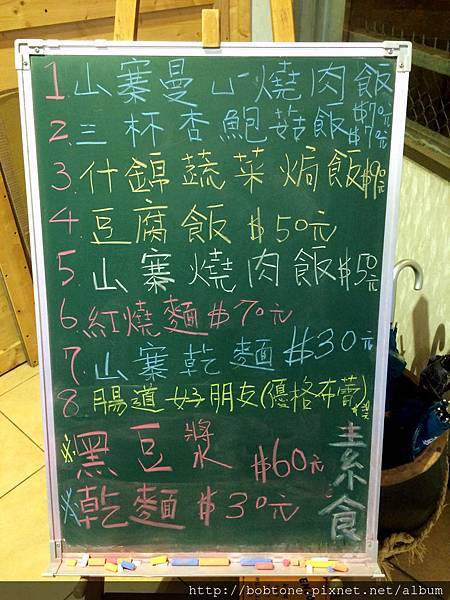 1 山寨曼ㄙ燒肉飯 $70元
2. 三杯杏鮑菇飯 $70元
3. 什錦蔬菜焗飯 $90元
4 豆腐飯 $50元
5 山寨燒肉飯 $50元
6. 紅燒麵 $70元
7. 山寨乾麵 $30元
8. 腸道好朋友(優格布蕾)
※黑豆漿 $60元
※乾麵 $30元
素食
http://bobtone.pixnet.net/album